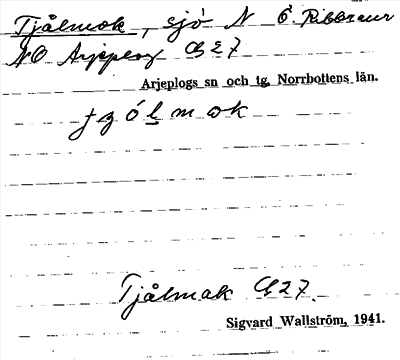 Tjålmok, sjö N Ö. Ribbraur
NO Arjeplog C27
Arjeplogs sn och tg, Norrbottens län.
tʒólmok
Tjålmak C27.
Sigvard Wallström, 1941.